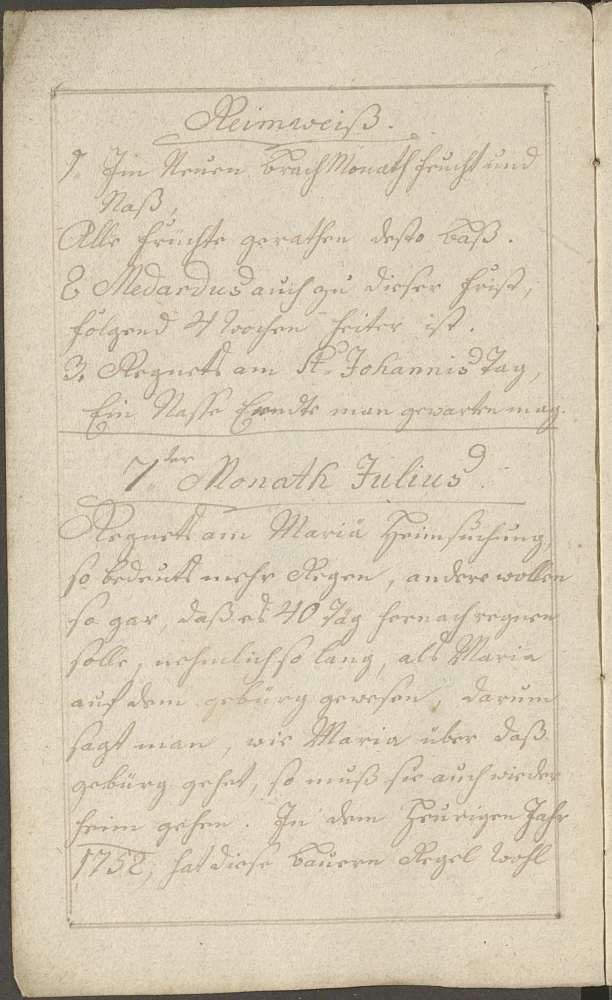 Reimweiß.
1. Im Neuen BrachMonath feucht und
Naß,
Alle früchte gerathen desto baß.
2 Medardus auch zu dieser frist,
folgend 4 Wochen heiter ist.
3. Regnets am St. Johannis Tag,
Ein Nasse Erndte man gewarten mag.
7.ter Monath Julius.
Regnets am Mariä Heimsuchung,
so bedeuts mehr Regen, andere wollen
so gar, daß es 40 Täg hernach regnen
solle, nehmlich so lang, als Maria
auf dem gebürg gewesen, darum
sagt man, wie Maria über daß
gebürg gehet, so muß sie auch wieder
heim gehen. In dem heurigen Jahr
1752, hat diese bauern Regel wohl